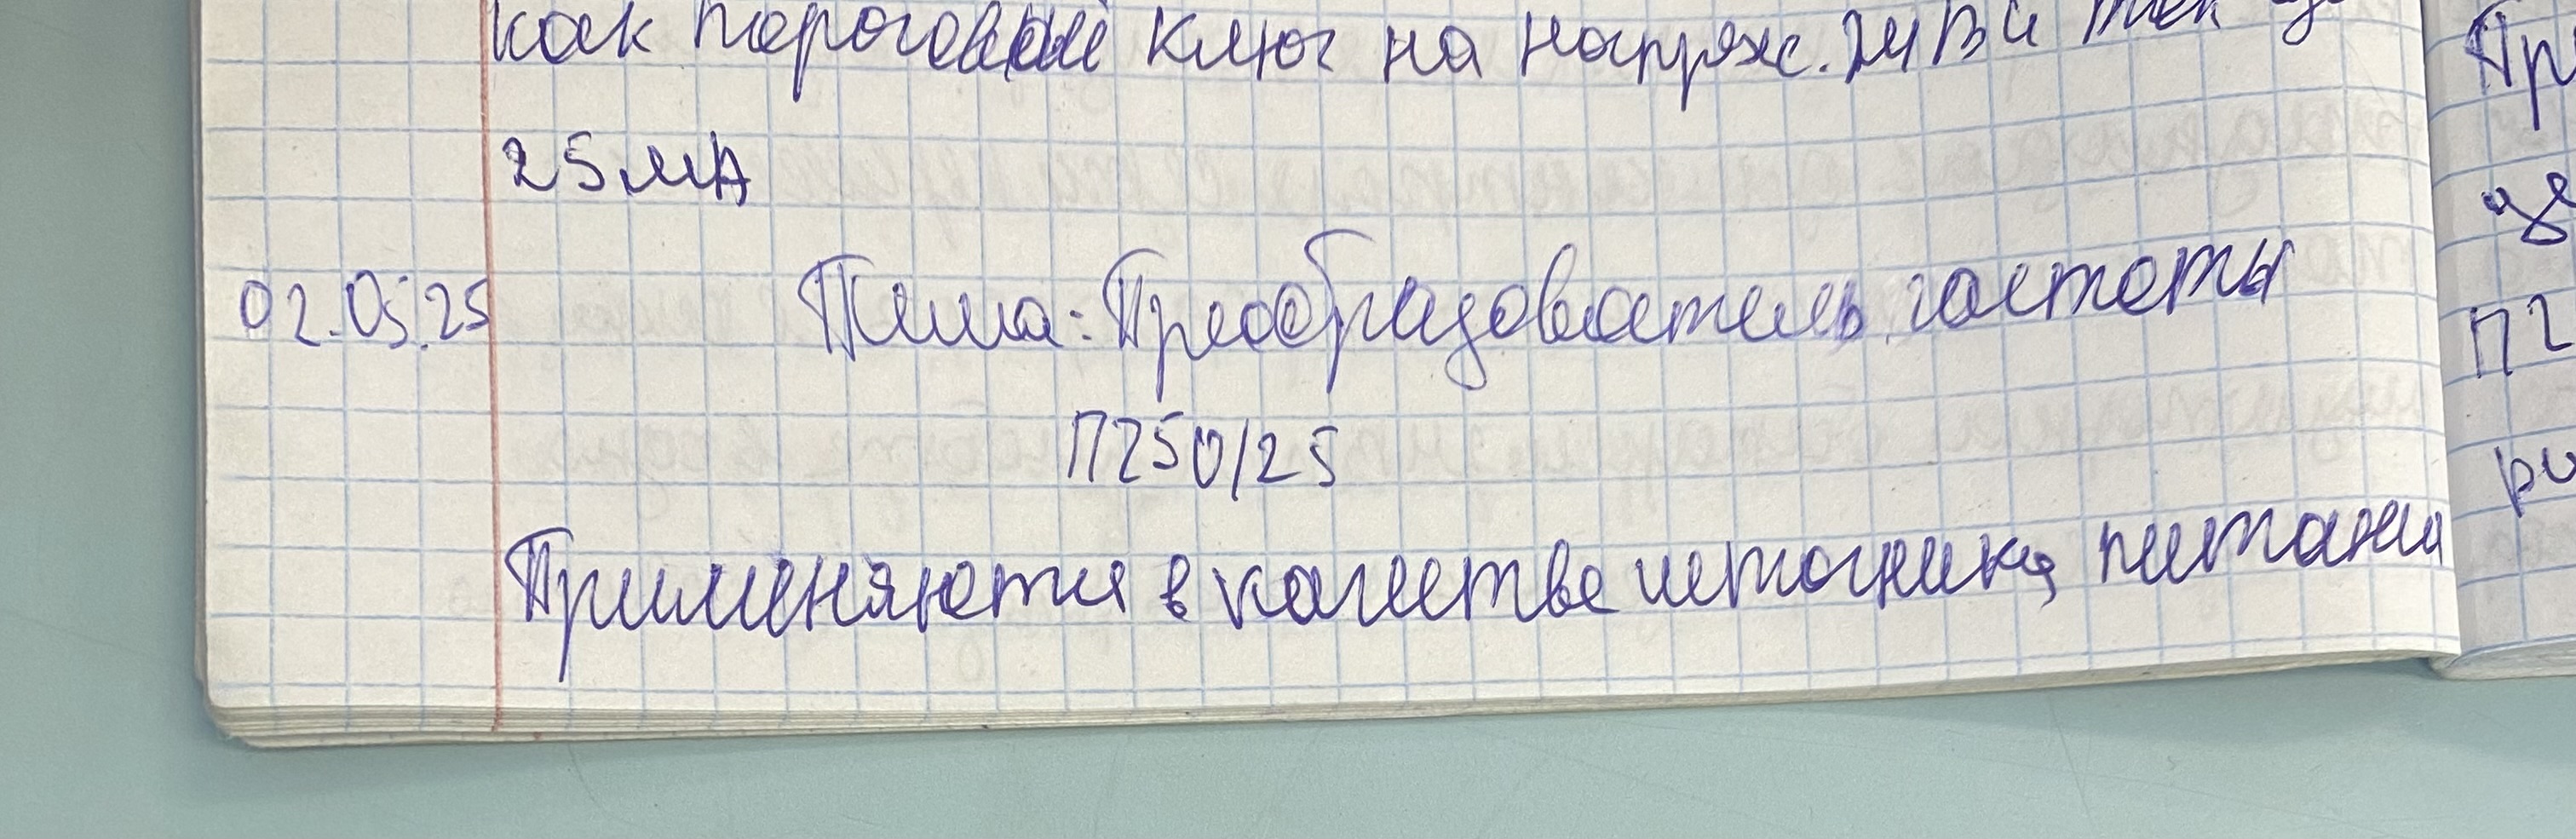 как пороговый ключ на напряж. 24В и ток до
25мА
02.05.25 Тема: Преобразователь частоты
П250/25
Применяются в качестве источника питания
Пр
П2